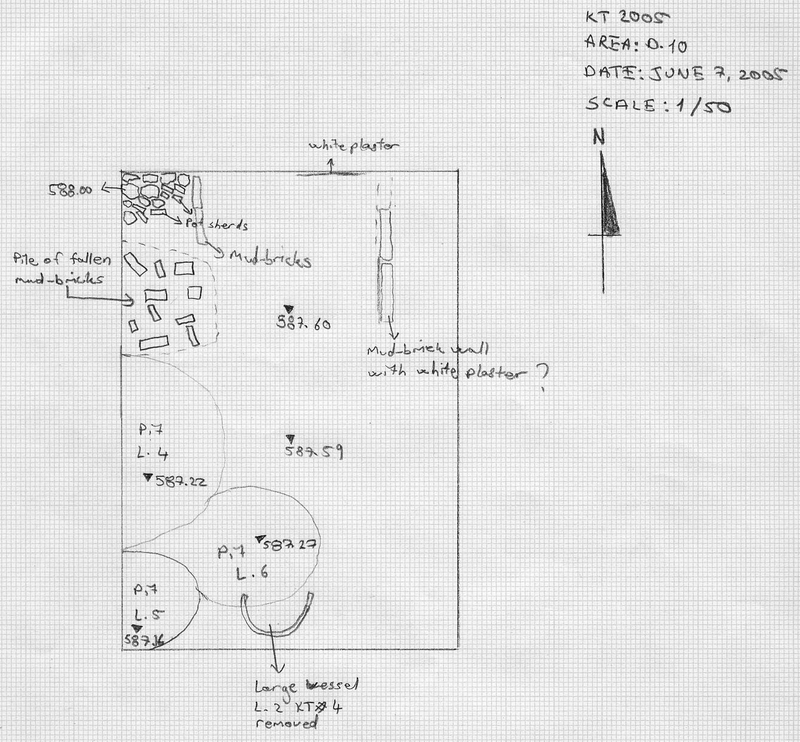 KT 2005
AREA: D.10
DATE: JUNE 7, 2005
SCALE: 1/50
N
white plaster
588.00
Pot sherds
Mud-bricks
Pile of fallen
mud-bricks
587.60
Mud-brick wall
with white plaster ?
587.59
P,7
L. 4
587.22
587.27
P,7
L. 6
P,7
L. 5
587.16
Large vessel
L. 2 KT 4
removed